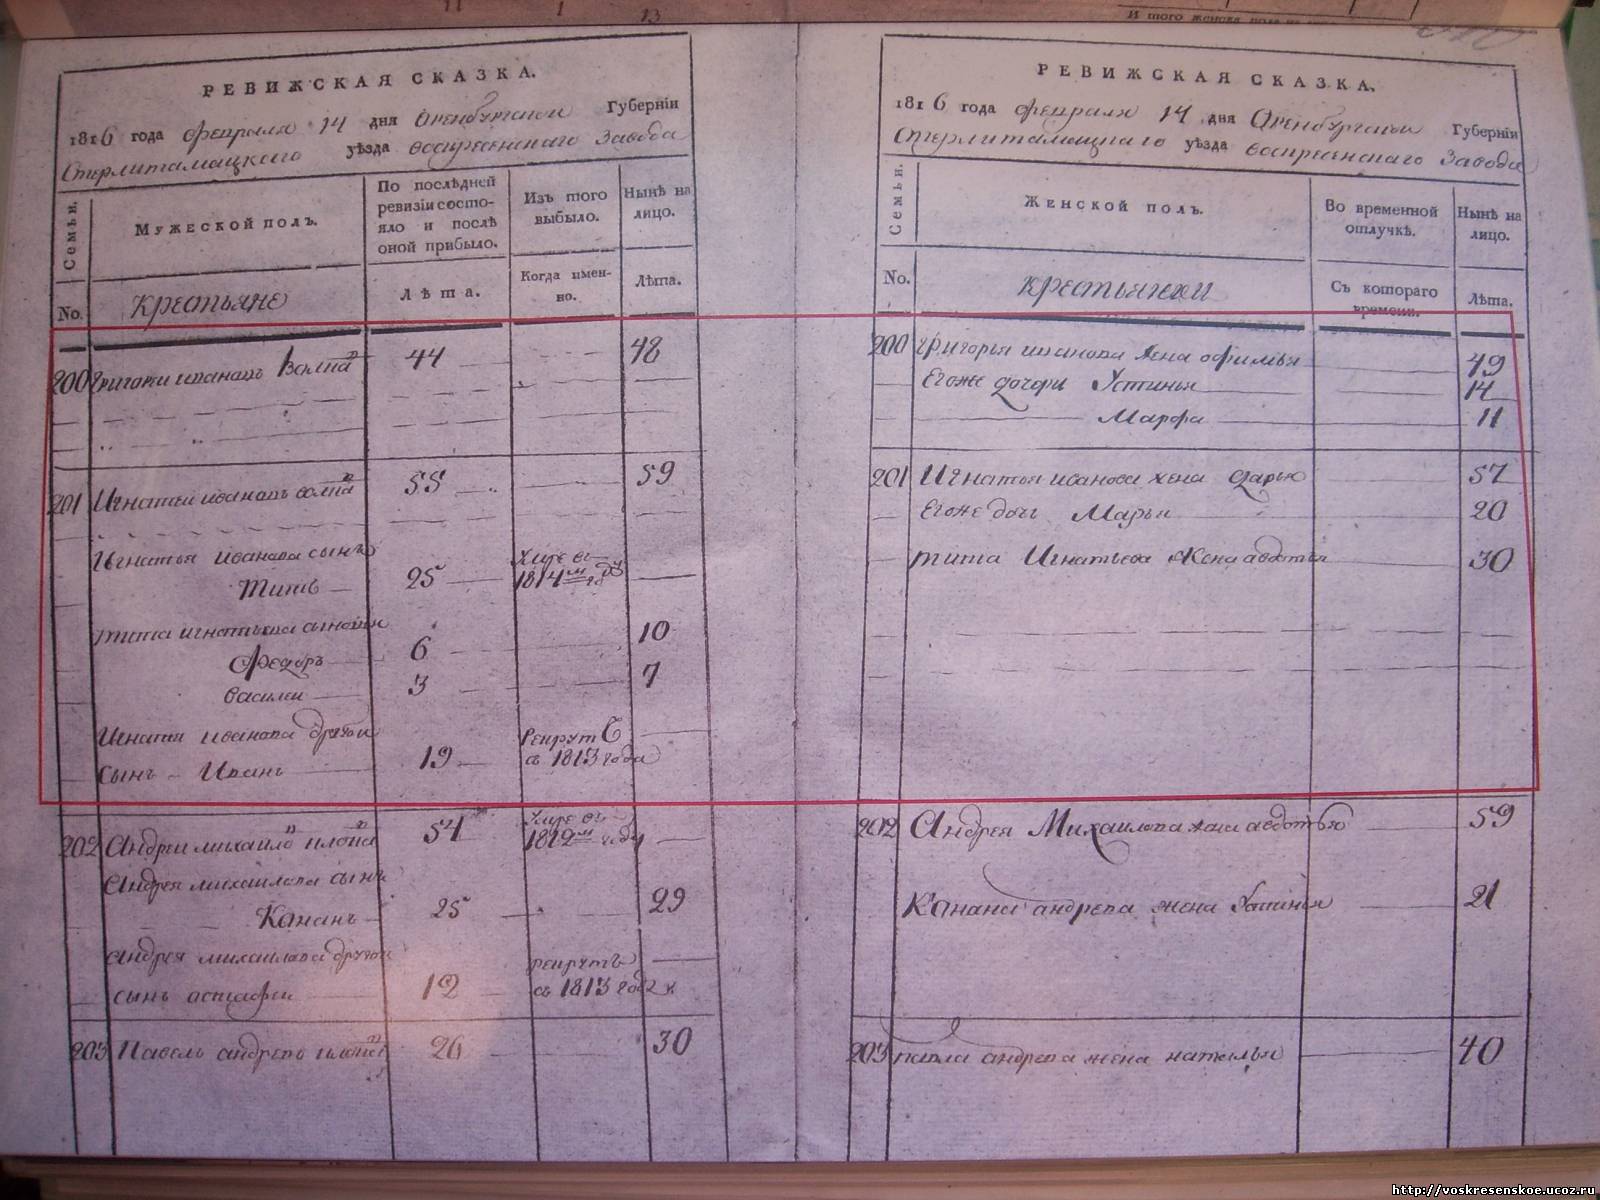 И того женска пола на
РЕВИЖСКАЯ СКАЗКА.
1816 года февраля 14 дня Оренбургской Губернїи
Стерлитамацкого уѣзда воскресенскаго завода
Семьи.
МУЖЕСКОЙ ПОЛЪ.
По послѣдней
ревизїи состо-
яло и послѣ
оной прибыло.
Изъ того
выбыло.
Нынѣ на
лицо.
No.
крестьяне
Лѣта.
Когда имен-
но.
Лѣта.
200 Григореи ивановъ Волпа 44 48
201 Игнатеи ивановъ волпа 55 59
Игнатья иванова сынъ
Титъ 25 Умре въ 1814м году
тита игнатьева сыновья
Федоръ 6 10
василеи 3 7
Игнатья иванова другои
сынъ Иванъ 19 Рекрутъ с 1813 года
202 Андреи михаило 54 Умре въ 1812м году
Андрея михаилова сынъ
Кананъ 25 29
андрея михаилова другои
сынъ астафеи 12 рекрутъ съ 1813 года
203 Павелъ андреевъ 26 30
РЕВИЖСКАЯ СКАЗКА.
1816 года февраля 14 дня Оренбургской Губернїи
Стерлитамацкаго уѣзда воскресенскаго завода
Семьи.
ЖЕНСКОЙ ПОЛЪ.
Во временной
отлучкѣ.
Нынѣ на
лицо.
No.
крестьянки
Съ котораго
времени.
Лѣта.
200 Григорья иванова жена офимья 49
Егоже дочери Устинья 14
Марфа 11
201 Игнатья иванова жена дарья 57
Егоже дочь Марья 20
тита Игнатьева жена авдотья 30
202 Андрея Михаилова жена авдотья 59
Канана андреева жена Устинья 21
203 павла андреева жена наталья 40
http://voskresenskoe.ucoz.ru